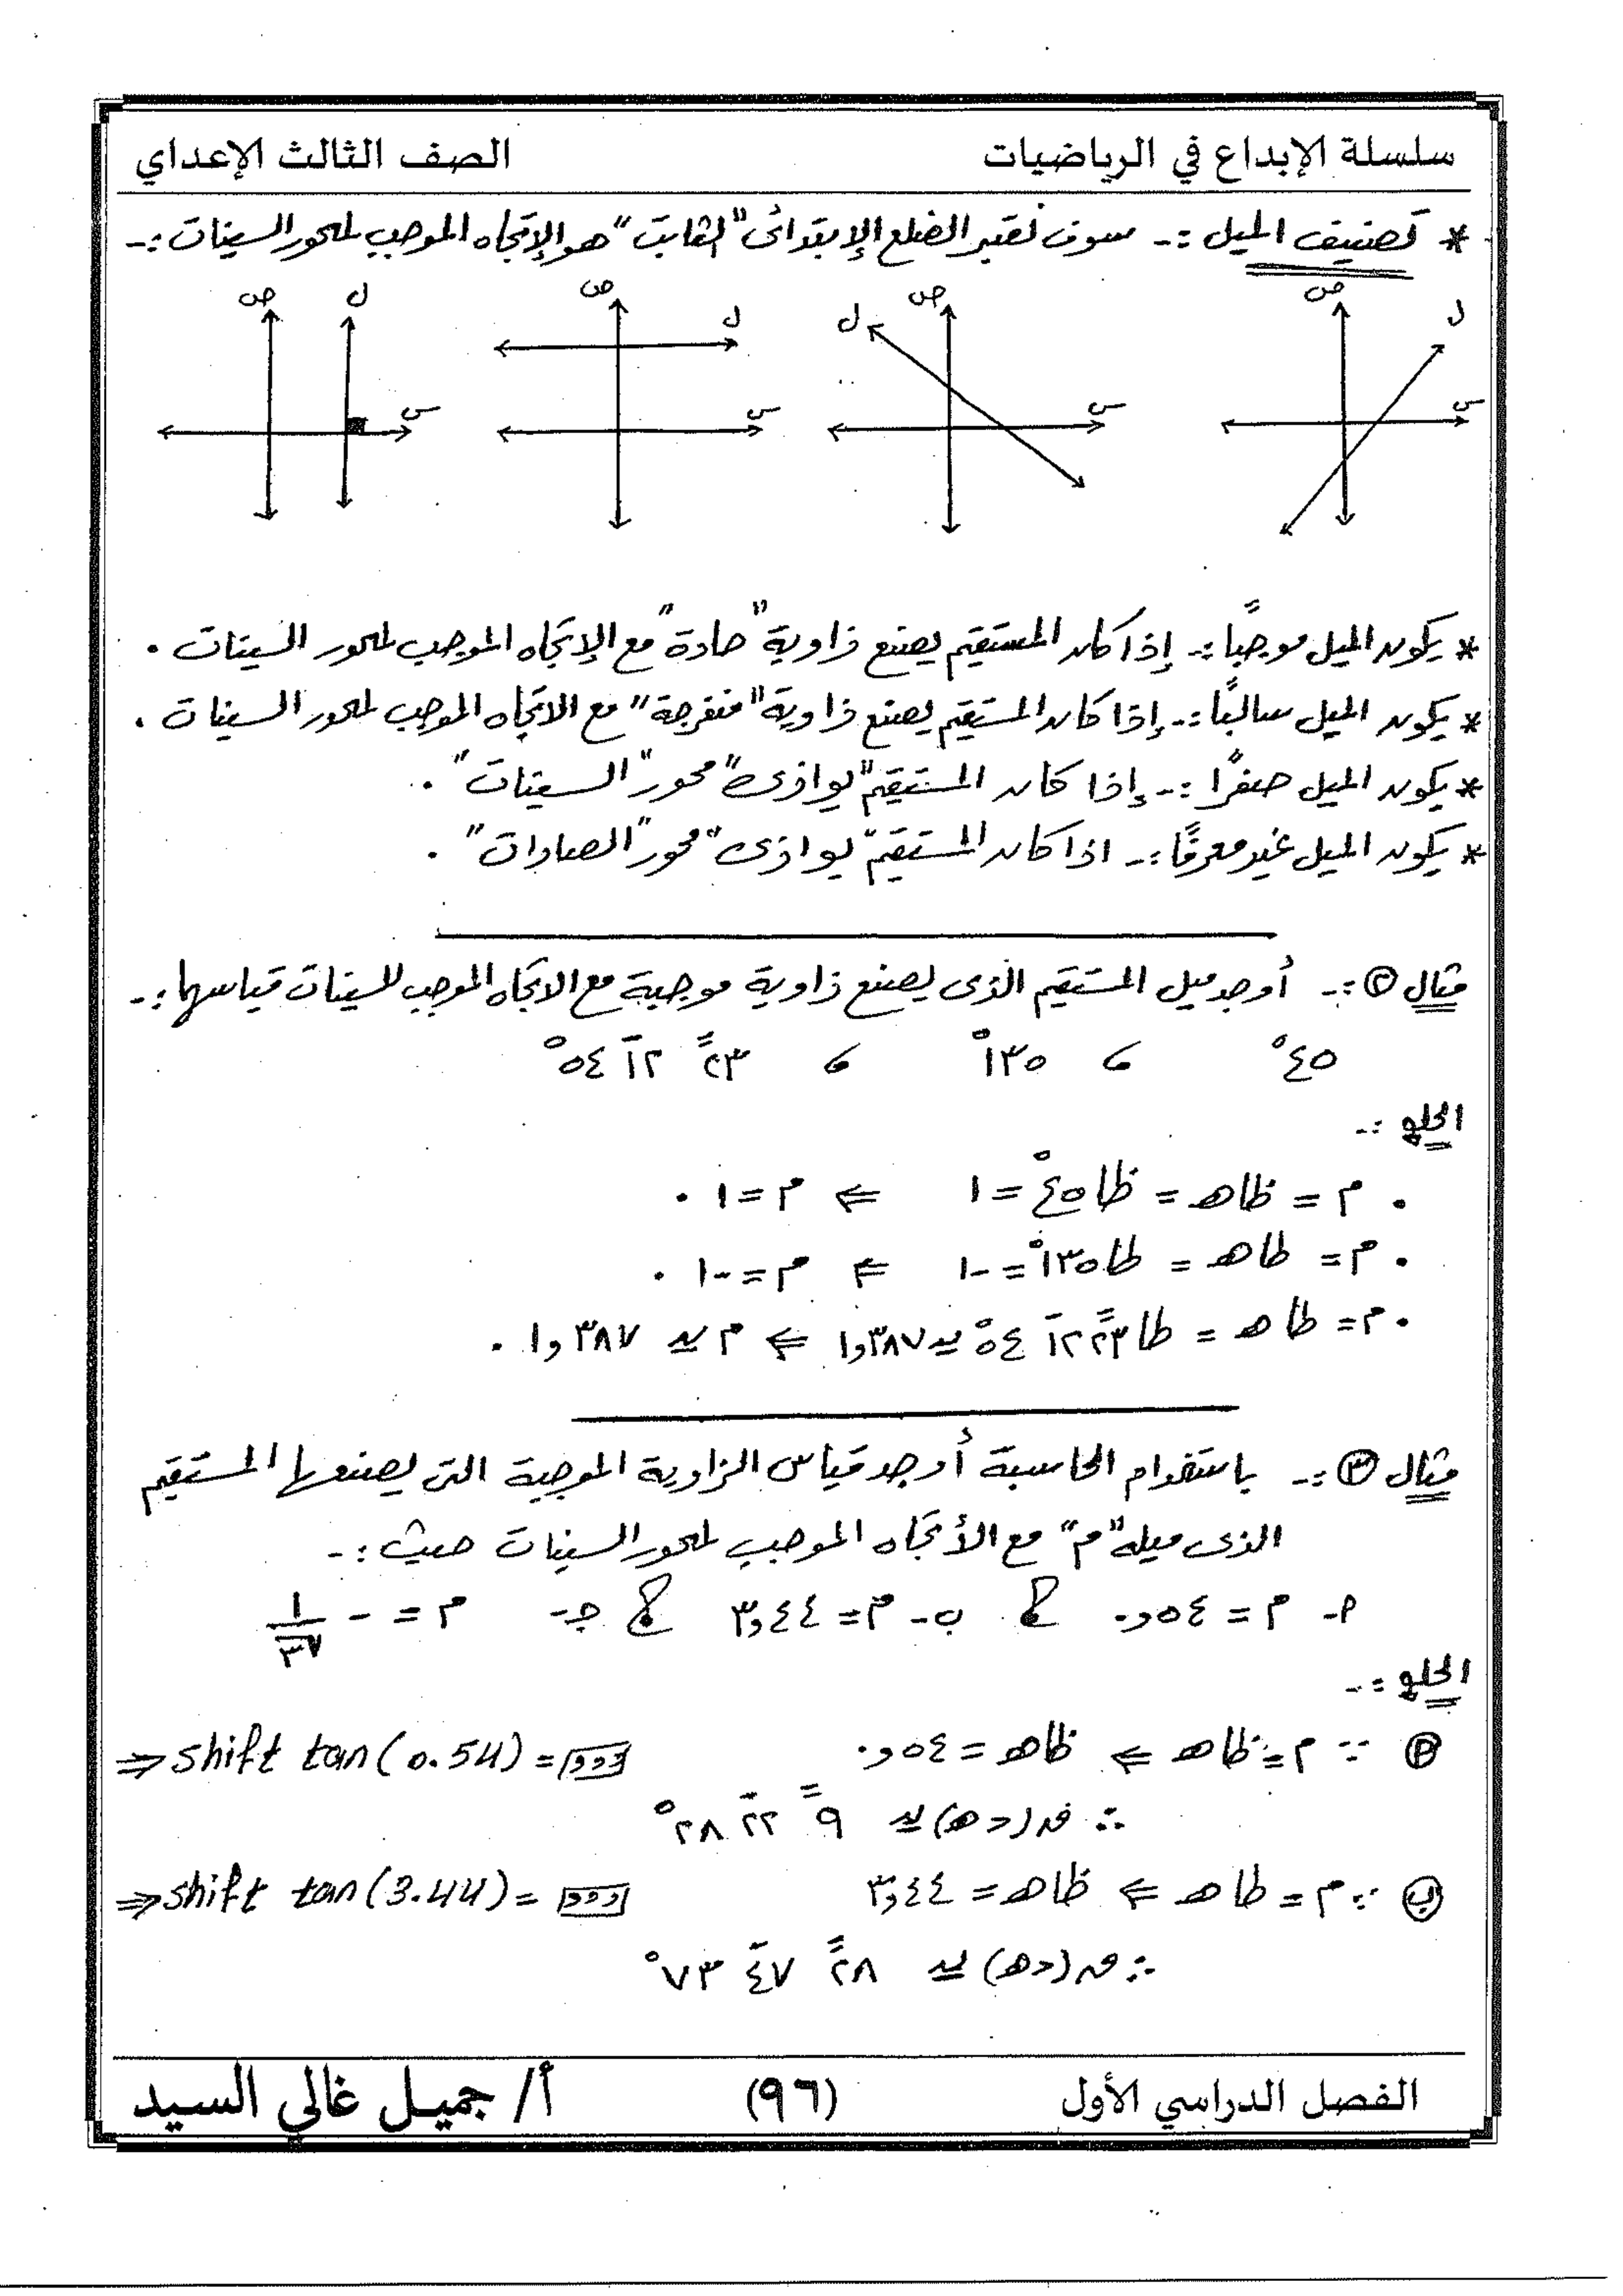 سلسلة الإبداع في الرياضيات
الصف الثالث الإعداي
* تصنيف الميل :- سوف نعتبر الضلع الإبتدائى "الثابت" هو الإتجاه الموجب لمحور السينات :-
ص ل س
ص ل س
ص ل س
ص ل س
* يكون الميل موجبًا :- إذا كان المستقيم يصنع زاوية "حادة" مع الإتجاه الموجب لمحور السينات .
* يكون الميل سالبًا :- إذا كان المستقيم يصنع زاوية "منفرجة" مع الاتجاه الموجب لمحور السينات .
* يكون الميل صفرًا :- إذا كان المستقيم "يوازى" محور "السينات" .
* يكون الميل غير معرفًا :- اذا كان المستقيم "يوازى" محور "الصادات" .
مثال ② :- أوجد ميل المستقيم الذى يصنع زاوية موجبة مع الاتجاه الموجب للسينات قياسها :-
٤٥° ، ١٣٥° ، ٢٣ً ١٢َ ٥٤°
الحل :-
. م = ظا هـ = ظا ٤٥° = ١ ⇐ م = ١ .
. م = طا هـ = طا ١٣٥° = -١ ⇐ م = -١ .
. م = طا هـ = طا ٢٣ً ١٢َ ٥٤° ≃ ١,٣٨٧ ⇐ م ≃ ١,٣٨٧ .
مثال ③ :- باستخدام الحاسبة أوجد قياس الزاوية الموجبة التى يصنعها المستقيم
الذى ميله "م" مع الأتجاه الموجب لمحور السينات حيث :-
أ- م = ٠,٥٤ ، ب- م = ٣,٤٤ ، جـ- م = - ١/٣٧
الحل :-
أ ∵ م = ظا هـ ⇐ ظا هـ = ٠,٥٤ ⇒ shift tan(0.54) =
∴ ق(دهـ) ≃ ٩ً ٢٢َ ٢٨°
ب ∵ م = طا هـ ⇐ ظا هـ = ٣,٤٤ ⇒ shift tan(3.44) =
∴ ق(دهـ) ≃ ٢٨ً ٤٧َ ٧٣°
الفصل الدراسي الأول
(٩٦)
أ/ جميل غالي السيد